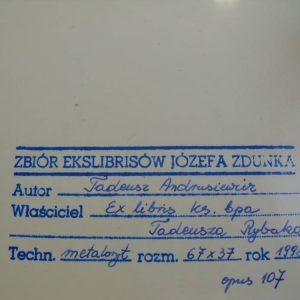 ZBIÓR EKSLIBRISÓW JÓZEFA ZDUNKA
Autor Tadeusz Andrusiewicz
Właściciel Ex libris ks. bpa
Tadeusza Rybaka
Techn. metaloryt rozm. 67x37 rok
opus 107